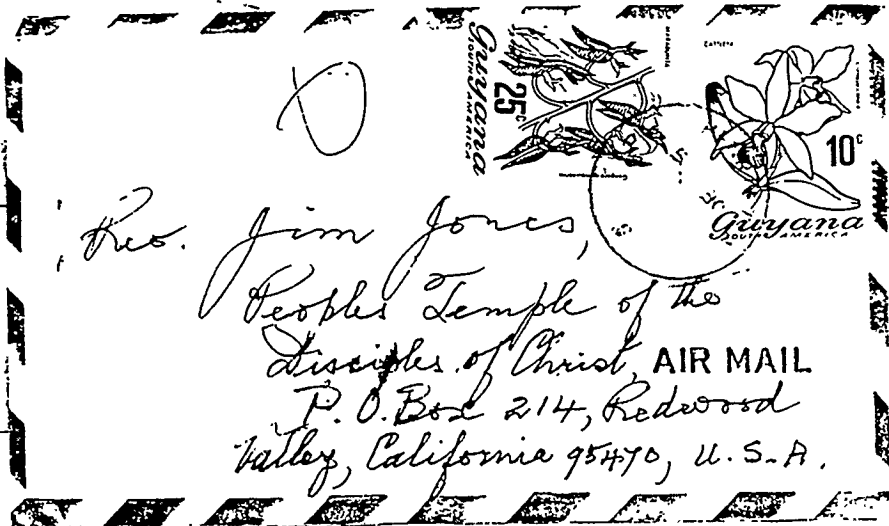 Guyana
SOUTH AMERICA
25c
Cattleya
10c
Guyana
SOUTH AMERICA
Rev. Jim Jones,
Peoples Temple of the
Disciples of Christ, AIR MAIL
P. O. Box 214, Redwood
Valley, California 95470, U. S. A.